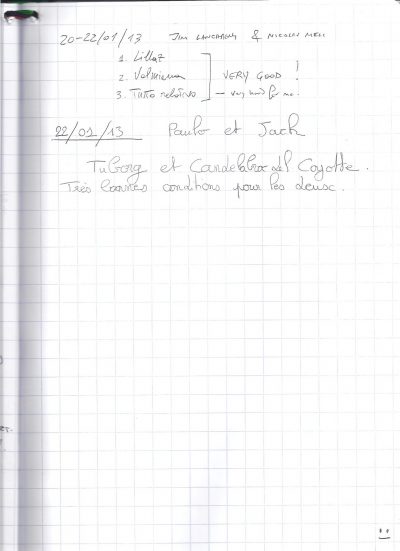 20-22/01/13 JIM & NICOLAS
1. Lillaz
2. Valmiana VERY GOOD !
3. Tutto relativo — very hard for me.
22/01/13 Paulo et Jack
Tuborg et Candelabra del Coyotte.
Très bonnes conditions pour les deux.